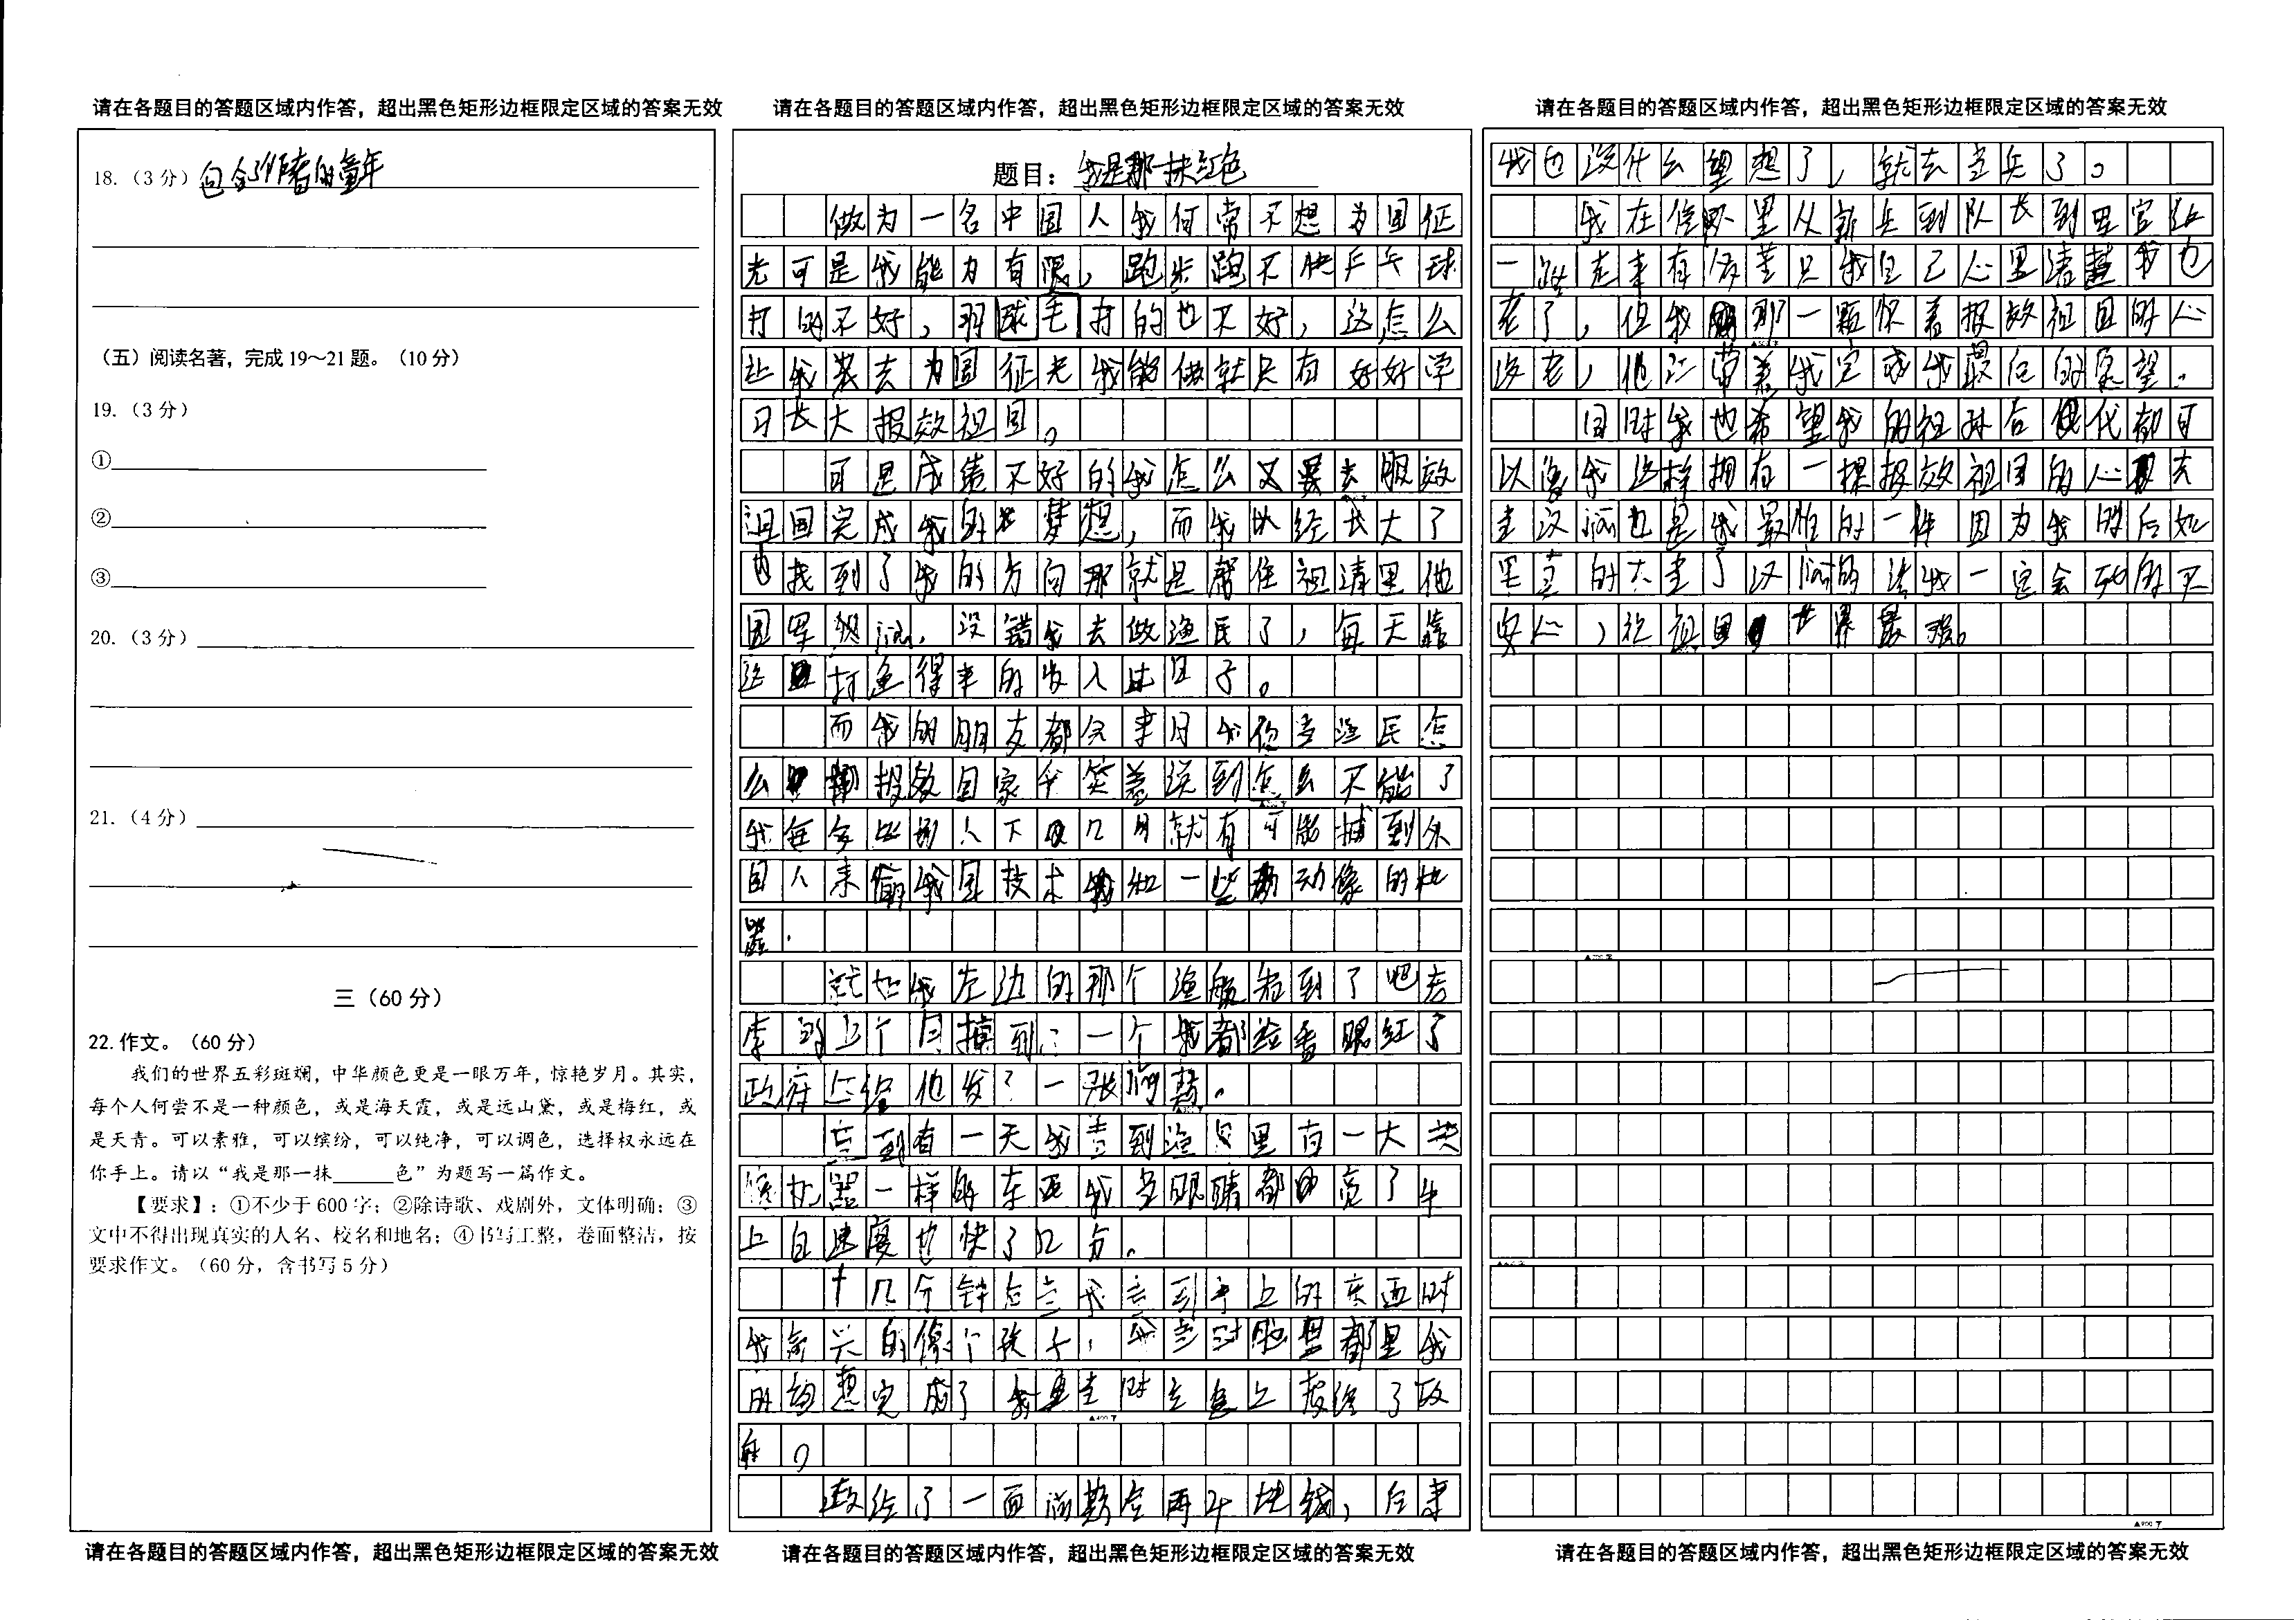 请在各题目的答题区域内作答，超出黑色矩形边框限定区域的答案无效
18.（3 分）包含作者的童年
（五）阅读名著，完成 19～21 题。（10 分）
19.（3 分）
①
②
③
20.（3 分）
21.（4 分）
三（60 分）
22.作文。（60 分）
我们的世界五彩斑斓，中华颜色更是一眼万年，惊艳岁月。其实，
每个人何尝不是一种颜色，或是海天霞，或是远山黛，或是梅红，或
是天青。可以素雅，可以缤纷，可以纯净，可以调色，选择权永远在
你手上。请以“我是那一抹______色”为题写一篇作文。
【要求】：①不少于 600 字；②除诗歌、戏剧外，文体明确；③
文中不得出现真实的人名、校名和地名；④书写工整，卷面整洁，按
要求作文。（60 分，含书写 5 分）
请在各题目的答题区域内作答，超出黑色矩形边框限定区域的答案无效
请在各题目的答题区域内作答，超出黑色矩形边框限定区域的答案无效
题目：我是那一抹红色
做为一名中国人我何常不想为国征
光可是我能力有限，跑步跑不快乒乓球
打的不好，羽球毛打的也不好，这怎么
让我去为国征光我能做就只有好好学
习长大报效祖国。
可是成绩不好的我怎么又要去服效
祖国完成我的梦想，而我以经长大了
也找到了我的方向那就是帮住祖清里他
国军舰，没错我去做渔民了，每天靠
打鱼得来的收入过日子。
而我的朋友都会来问我你当渔民怎
么报效国家我笑着说到怎么不能了
我每多比别人下几网就有可能捕到外
国人来偷我国技术和一些动像的机
器.
就如我左边的那个渔船看到了吧老
李的上个月捕到了一个我都给看眼红了
政府还给他发了一张
直到有一天我看到渔网里有一大块
像机器一样的东西我当眼睛都亮了车
上自速度也快了几分。
十几分钟后当我拿到手上的东西时
我高兴的像个孩子，我当时脑里都里我
的梦想完成了我
给了一面再半块钱，后来
请在各题目的答题区域内作答，超出黑色矩形边框限定区域的答案无效
请在各题目的答题区域内作答，超出黑色矩形边框限定区域的答案无效
我也没什么望想了，就去当兵了。
我在里从新兵到队长到里官这
一路走来有多苦只我自己心里清楚我也
老了，但我那一颗怀着报效祖国的心
没老，他让带着我完成我最后的愿望。
同时我也希望我的祖孙后代都可
以像我这样拥有一棵报效祖国的心去
当汉也是我最怕的一件因为我的后如
果真的去当了汉的话我一定会死的不
安心，祝祖国世界最强。
请在各题目的答题区域内作答，超出黑色矩形边框限定区域的答案无效